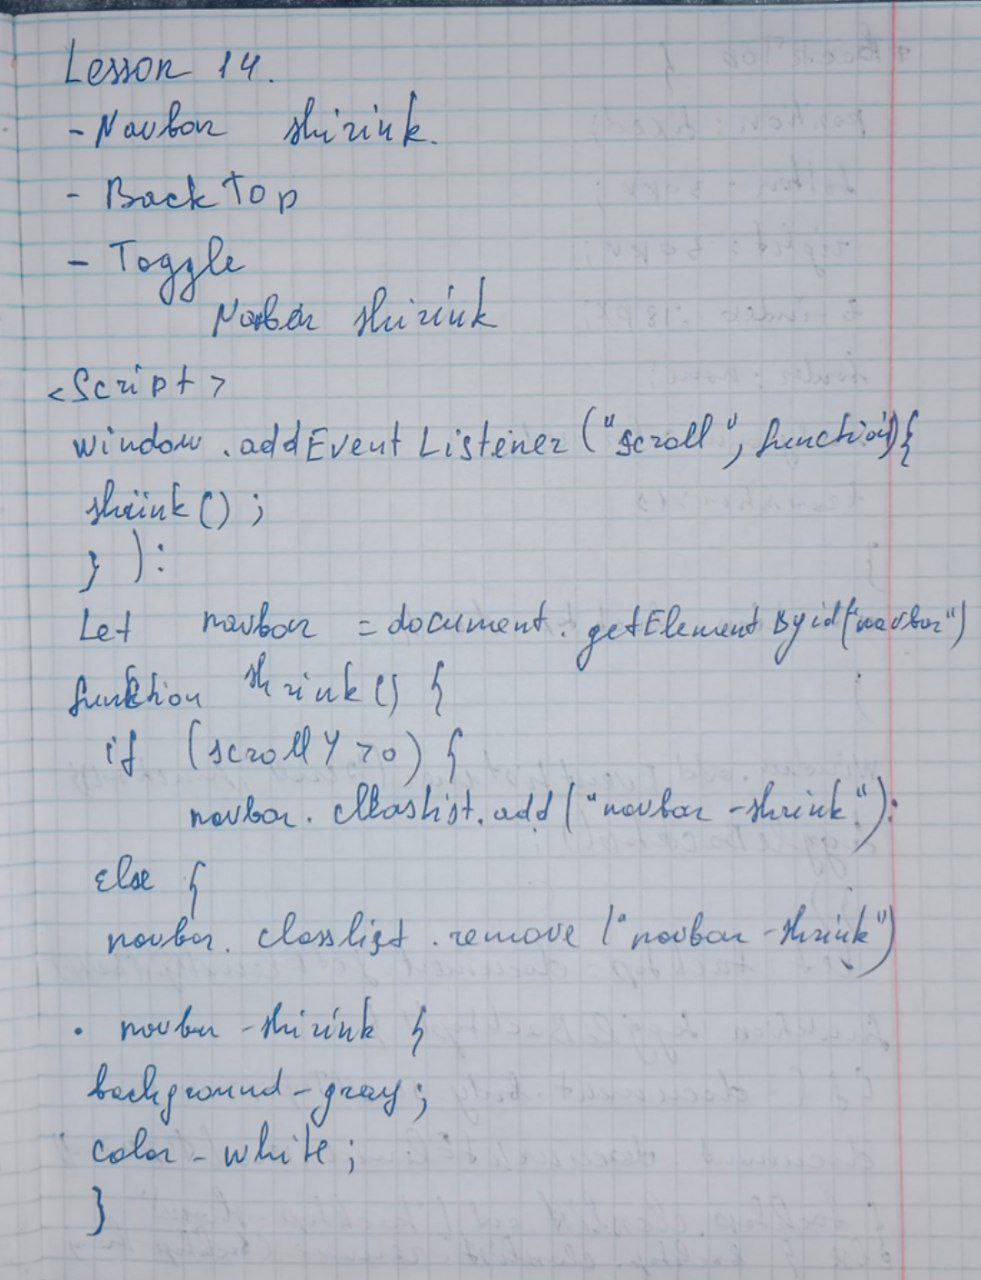 Lesson 14.
- Navbar shirink.
- Back Top
- Toggle
Navbar shirink
<Script>
window.addEventListener("scroll", function(){
shrink();
} ):
Let navbar = document.getElementByid("navbar")
function shrink() {
if (scrollY >0) {
navbar.classlist.add("navbar-shrink"):
Else {
navbar.classlist.remove("navbar-shrink")
. navbar-shirink {
background-gray;
color-white;
}